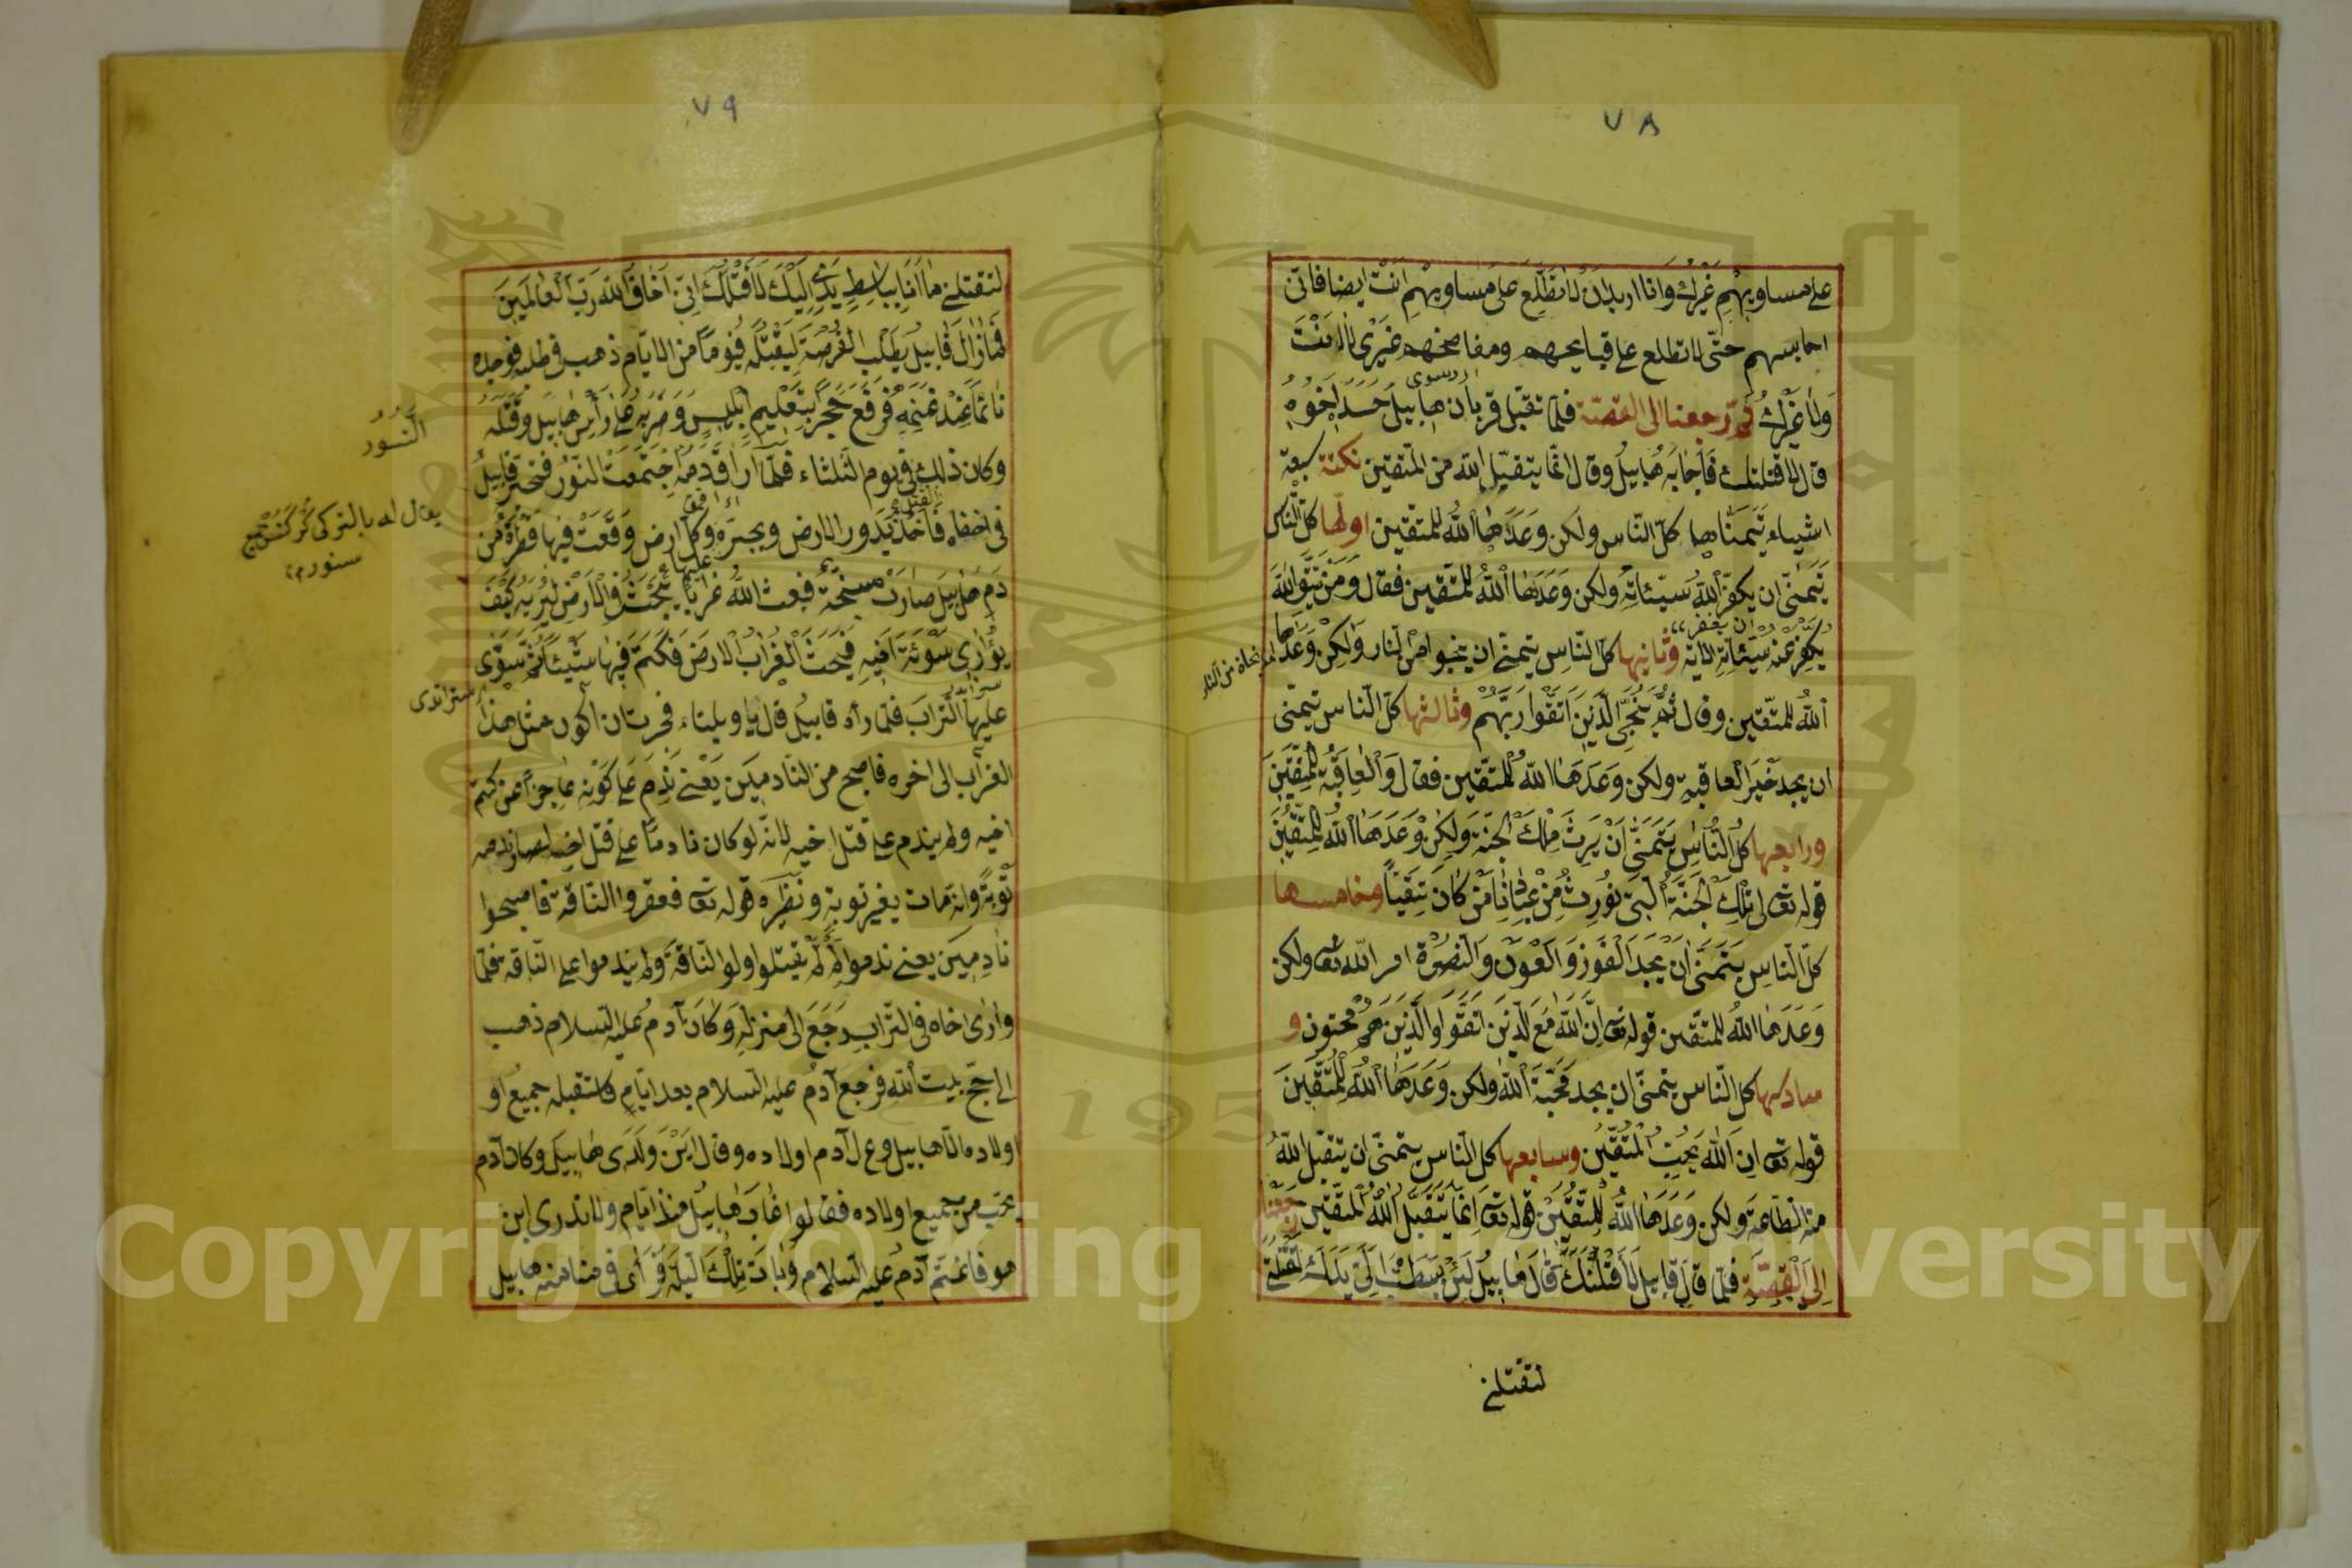 ٧٨
على مساويهم غيرك وانا اريد ان لا تطلع على مساويهم انت ايضا فانى
احابسهم حتى لا تطلع على قبايحهم ومفاضحهم غيرى لا انت
ولا غيرك ثم رجعنا الى القصة فلما تقبل قربان هابيل حسد اخوه
قال لاقتلنك فاجابه هابيل وقال انما يتقبل الله من المتقين نكتة سبعة
اشياء يتمناها كل الناس ولكن وعدها الله للمتقين اولها كل الناس
يتمنى ان يكفر الله سيئاته ولكن وعدها الله للمتقين فقال ومن يتق الله
ان يغفر
يكفر عنه سيئاته الاية وثانيها كل الناس يتمنى ان ينجوا من النار ولكن وعدها
الله للمتقين وقال ثم ننجى الذين اتقوا ربهم وثالثها كل الناس يتمنى
ان يجد خير العاقبة ولكن وعدها الله للمتقين فقال والعاقبة للمتقين
ورابعها كل الناس يتمنى ان يرث ملك الجنة ولكن وعدها الله للمتقين
قوله تعالى تلك الجنة التى نورث من عبادنا من كان تقيا وخامسها
كل الناس يتمنى ان يجد الفوز والعون والنصرة امر الله تع ولكن
وعدها الله للمتقين قوله تع ان الله مع الذين اتقوا والذين هم محسنون و
سادسها كل الناس يتمنى ان يجد محبة الله ولكن وعدها الله للمتقين
قوله تع ان الله يحب المتقين وسابعها كل الناس يتمنى ان يتقبل الله
منه الطاعة ولكن وعدها الله للمتقين قوله تع انما يتقبل الله المتقين رجعنا
الى القصة فلما قال قابيل لاقتلنك قال هابيل لئن بسطت الى يدك
لتقتلنى
٧٩
لتقتلنى ما انا بباسط يدى اليك لاقتلك انى اخاف الله رب العالمين
فما زال قابيل يطلب الفرصة ليقتله فيوما من الايام ذهب فى طلبه فوجده
نائما عند غنمه فرفع حجرا بتعليم ابليس وضربه على رأس هابيل وقتله
وكان ذلك فى يوم الثلثاء فلما اراق دمه اجتمعت النسور فتحير قابيل
النسور
فى اخفاه فاخذ يدور الارض ويجره وكل ارض وقعت فيها قطرة من
يقال له بالتركى
دم هابيل صارت سبخة فبعث الله غرابا يبحث فى الارض ليريه كيف
يوارى سوئة اخيه فبحث الغراب الارض فكتم فيها شيئا ثم سوى
عليها التراب فلما رآه قابيل قال يا ويلتاء عجزت ان اكون مثل هذا
الغراب الى اخره فاصبح من النادمين يعنى ندم على كونه عاجزا عن كتم
اخيه ولم يندم على قتل اخيه لانه لو كان نادما على قتل اخيه لصار ندمه
توبة وانه مات بغير توبة ونظيره قوله تع فعقروا الناقة فاصبحوا
نادمين يعنى ندموا لم لم يقتلوا ولو الناقة ولم يندموا على الناقة فلما
وارى اخاه فى التراب رجع الى منزله وكان آدم عليه السلام ذهب
الى حج بيت الله فرجع آدم عليه السلام بعد ايام فاستقبله جميع او
ولاده الا هابيل ودعا آدم اولاده وقال اين ولدى هابيل وكان آدم
يحب من جميع اولاده فقالوا غاب هابيل منذ ايام ولا ندرى اين
هو فاغتم آدم عليه السلام وبات تلك الليلة فرأى فى منامنه هابيل